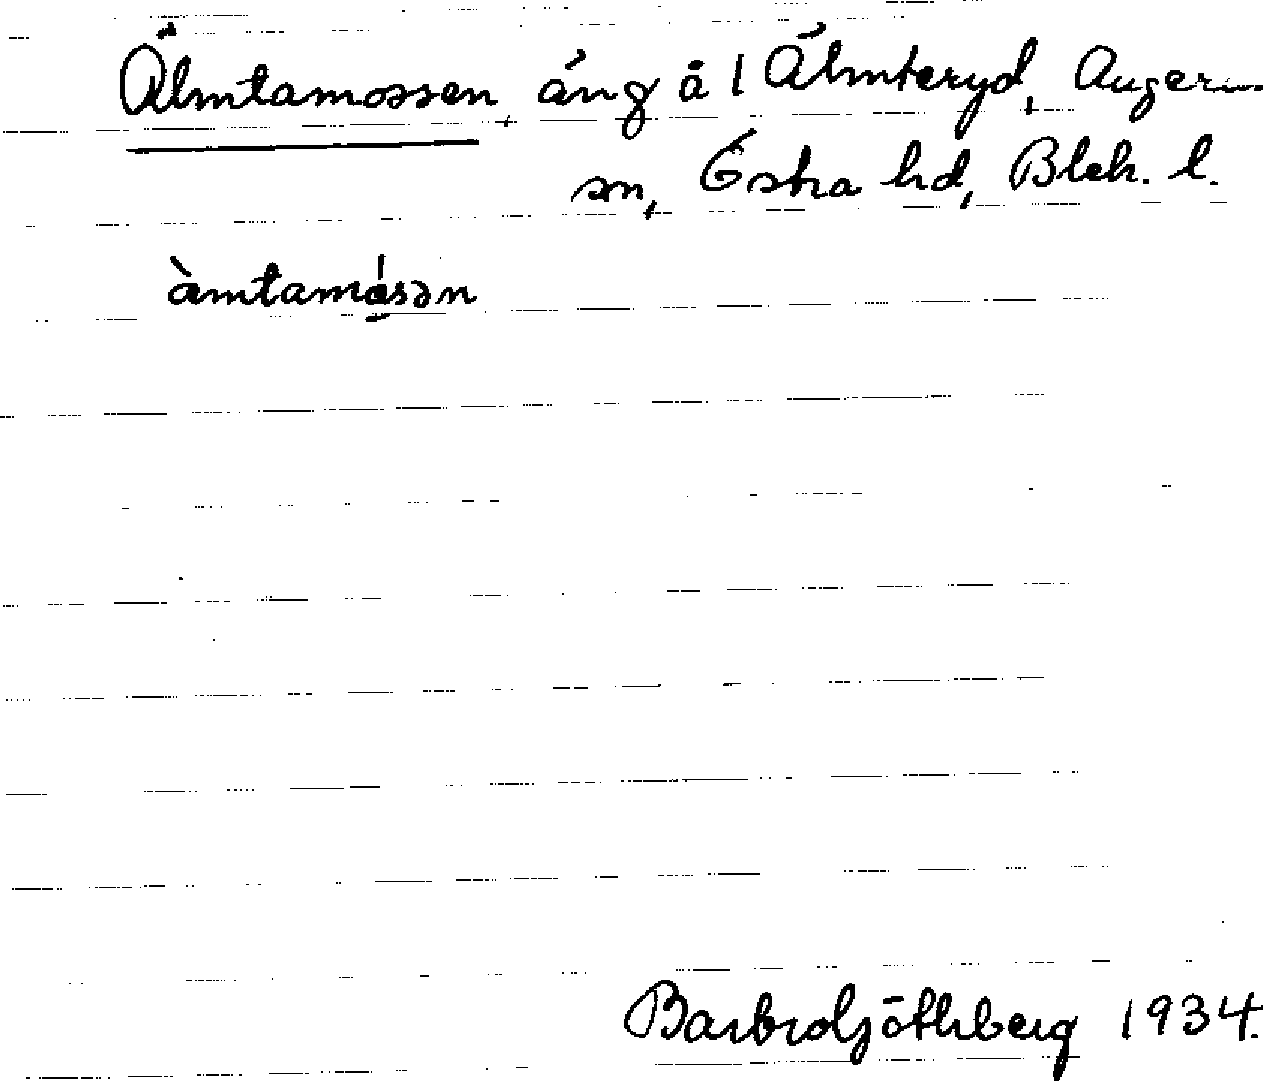 Älmtamossen, äng å 1 Älmteryd, Augerums
sn, Östra hd, Blek. l.
àmtamåsən
Barbro Göthberg 1934.